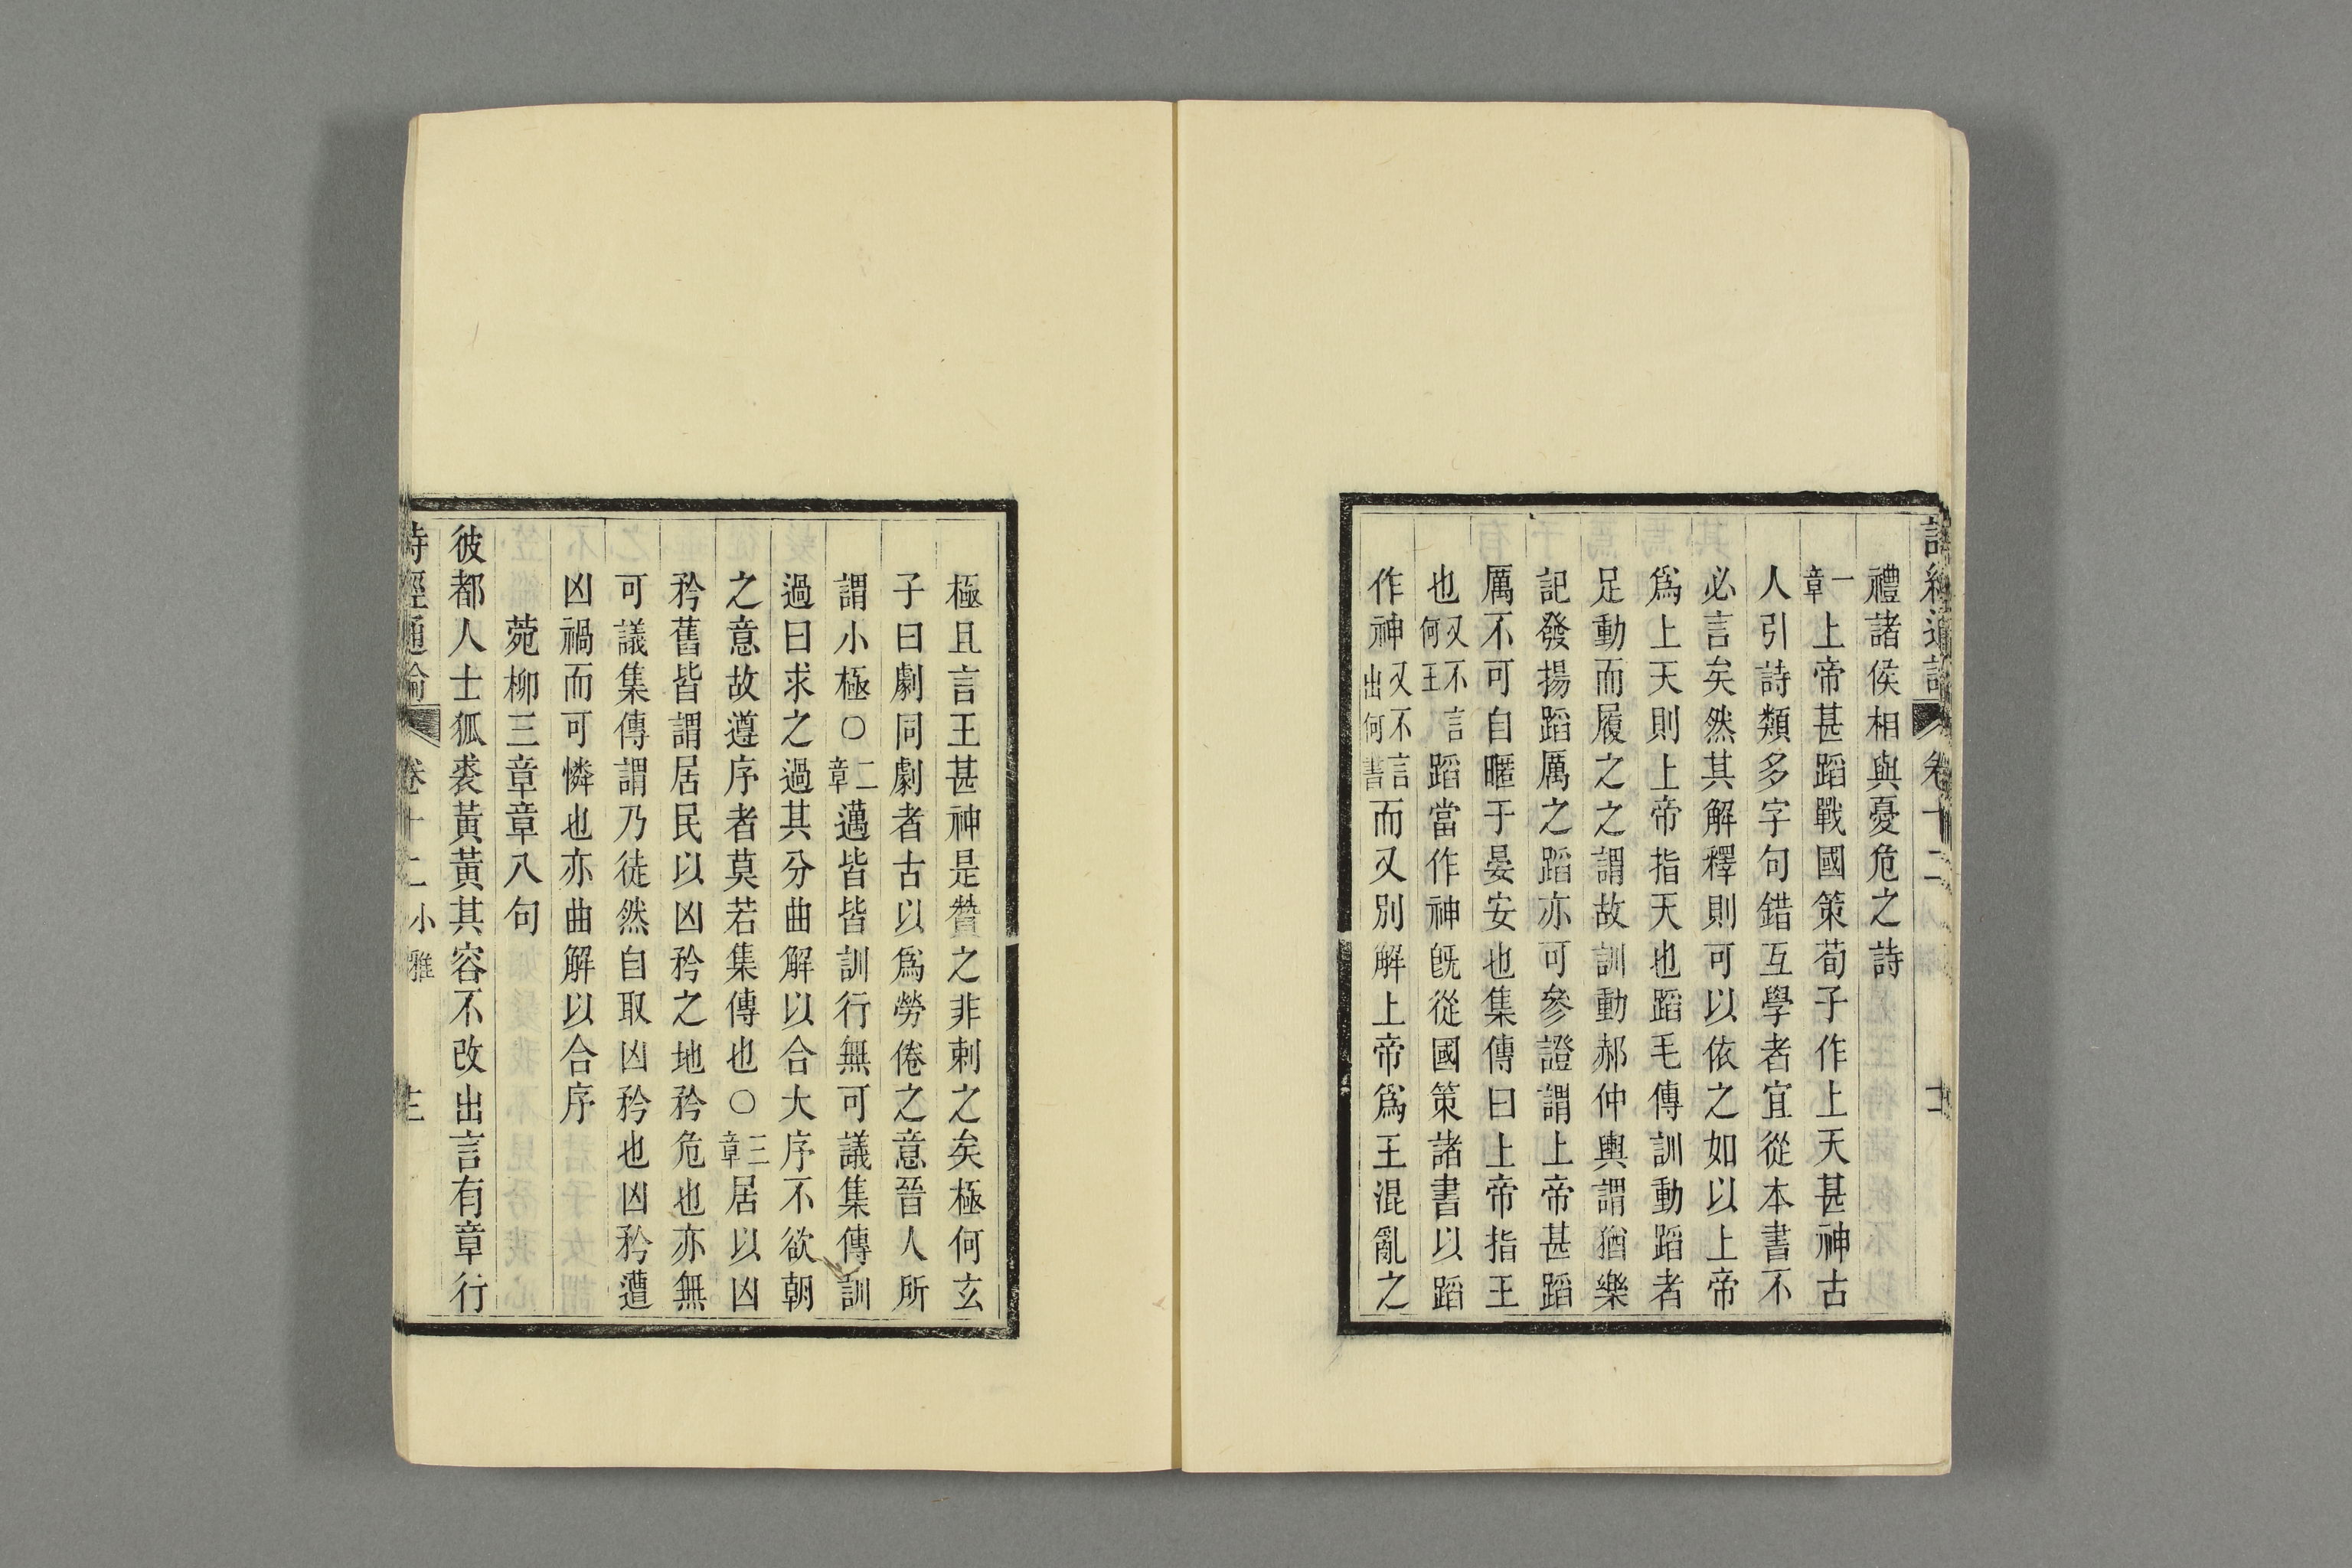 禮諸侯相與憂危之詩
一章上帝甚蹈戰國策荀子作上天甚神古
人引詩類多字句錯互學者宜從本書不
必言矣然其解釋則可以依之如以上帝
爲上天則上帝指天也蹈毛傳訓動蹈者
足動而履之之謂故訓動郝仲輿謂猶樂
記發揚蹈厲之蹈亦可參證謂上帝甚蹈
厲不可自暱于晏安也集傳曰上帝指王
也又不言何王蹈當作神既從國策諸書以蹈
作神又不言出何書而又別解上帝爲王混亂之
極且言王甚神是贊之非刺之矣極何玄
子曰劇同劇者古以爲勞倦之意晉人所
謂小極〇二章邁皆皆訓行無可議集傳訓
過曰求之過其分曲解以合大序不欲朝
之意故遵序者莫若集傳也〇三章居以凶
矜舊皆謂居民以凶矜之地矜危也亦無
可議集傳謂乃徒然自取凶矜也凶矜遭
凶禍而可憐也亦曲解以合序
菀柳三章章八句
彼都人士狐裘黃黃其容不改出言有章行
詩經通論 卷十二 小雅 十三